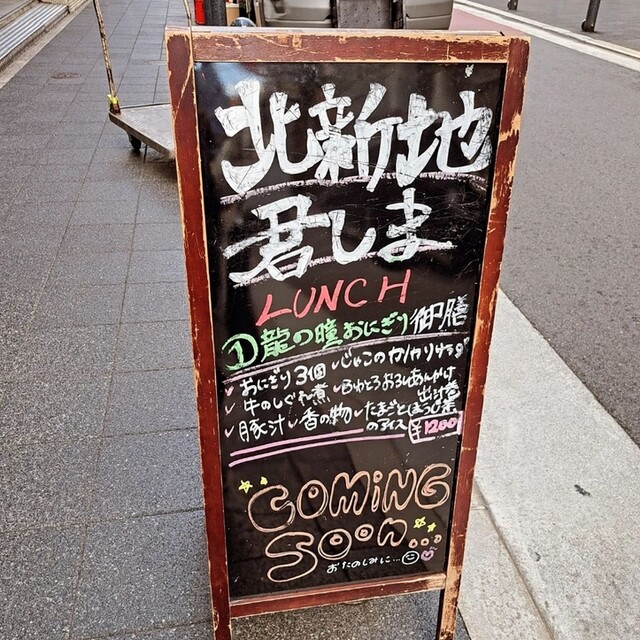 北新地
君しま
LUNCH
① 龍の瞳おにぎり御膳
✓おにぎり3個 ✓じゃこのカリカリサラダ
✓牛のしぐれ煮 ✓ふわとろおろしあんかけ出汁巻
✓豚汁 ✓香の物 ✓たまごとほうじ茶のアイス ¥1200
COMiNG
SOON...
おたのしみに...